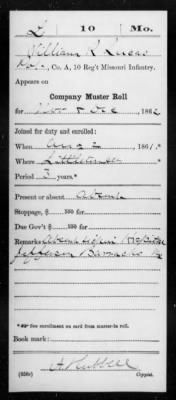 L | 10 | Mo.
William R Lucas
Co. A, 10 Reg't Missouri Infantry.
Appears on
Company Muster Roll
for Nov & Dec, 1862
Joined for duty and enrolled:
When Aug 2, 1861.*
Where
Period 3 years.*
Present or absent Absent
Stoppage, $ 100 for
Due Gov't $ 100 for
Remarks: Absent
Jefferson Barracks Mo
*See enrollment on card from muster-in roll.
Book mark:
Hubbell
(358c) Copyist.